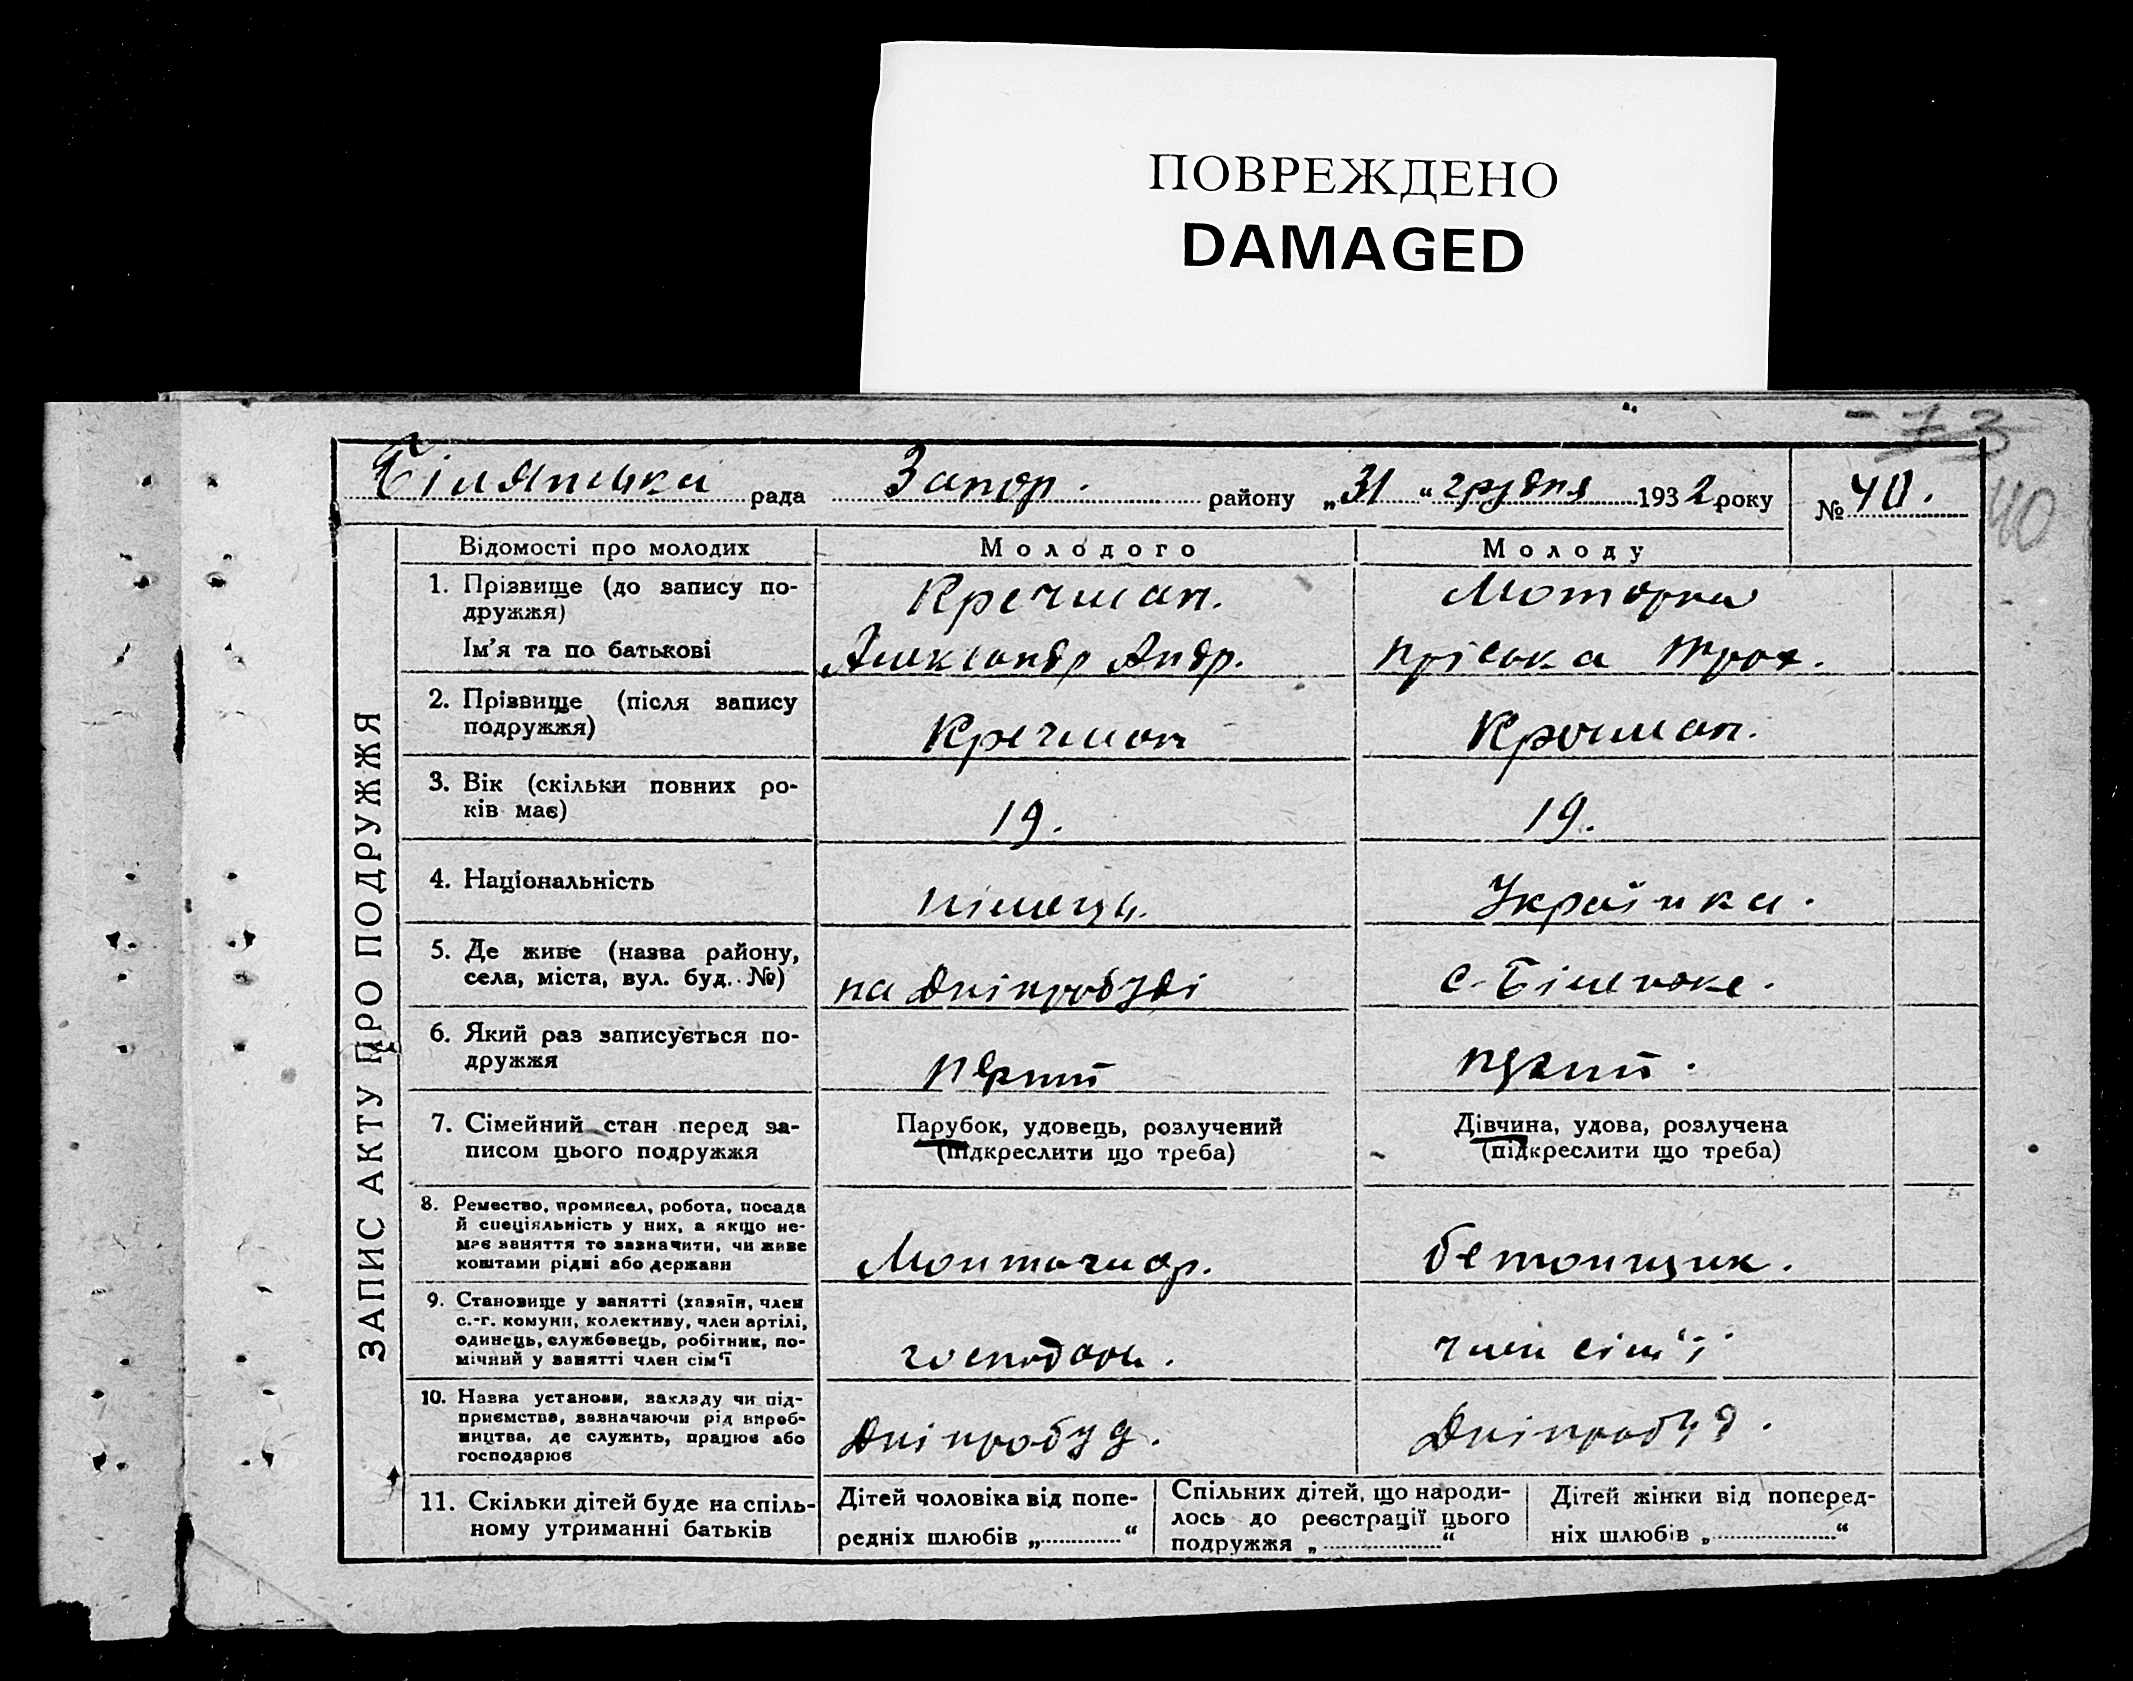 ПОВРЕЖДЕНО
DAMAGED
73
рада Запор. району „31“ грудня 1932 року № 40.
40
ЗАПИС АКТУ ПРО ПОДРУЖЖЯ
Відомості про молодих Молодого Молоду
1. Прізвище (до запису по-
дружжя) Кречман.
Ім'я та по батькові Александр Андр. Пріська Троф.
2. Прізвище (після запису
подружжя) Кречман Кречман.
3. Вік (скільки повних ро-
ків має) 19. 19.
4. Національність німець. Українка.
5. Де живе (назва району,
села, міста, вул. буд. №) на Дніпробуді с. Біленьке.
6. Який раз записується по-
дружжя перший
7. Сімейний стан перед за-
писом цього подружжя
Парубок, удовець, розлучений
(підкреслити що треба)
Дівчина, удова, розлучена
(підкреслити що треба)
8. Ремество, промисел, робота, посада
й спеціяльність у них, а якщо не-
має заняття то зазначити, чи живе
коштами рідні або держави бетонщик.
9. Становище у занятті (хазяїн, член
с.-г. комуни, колективу, член артілі,
одинець, службовець, робітник, по-
мічний у занятті член сім'ї господарь. член сім'ї
10. Назва установи, закладу чи під-
приємства, зазначаючи рід вироб-
ництва, де служить, працює або
господарює Дніпробуд. Дніпробуд.
11. Скільки дітей буде на спіль-
ному утриманні батьків
Дітей чоловіка від попе-
редніх шлюбів „............“
Спільних дітей, що народи-
лось до реєстрації цього
подружжя „..................“
Дітей жінки від поперед-
ніх шлюбів „..................“